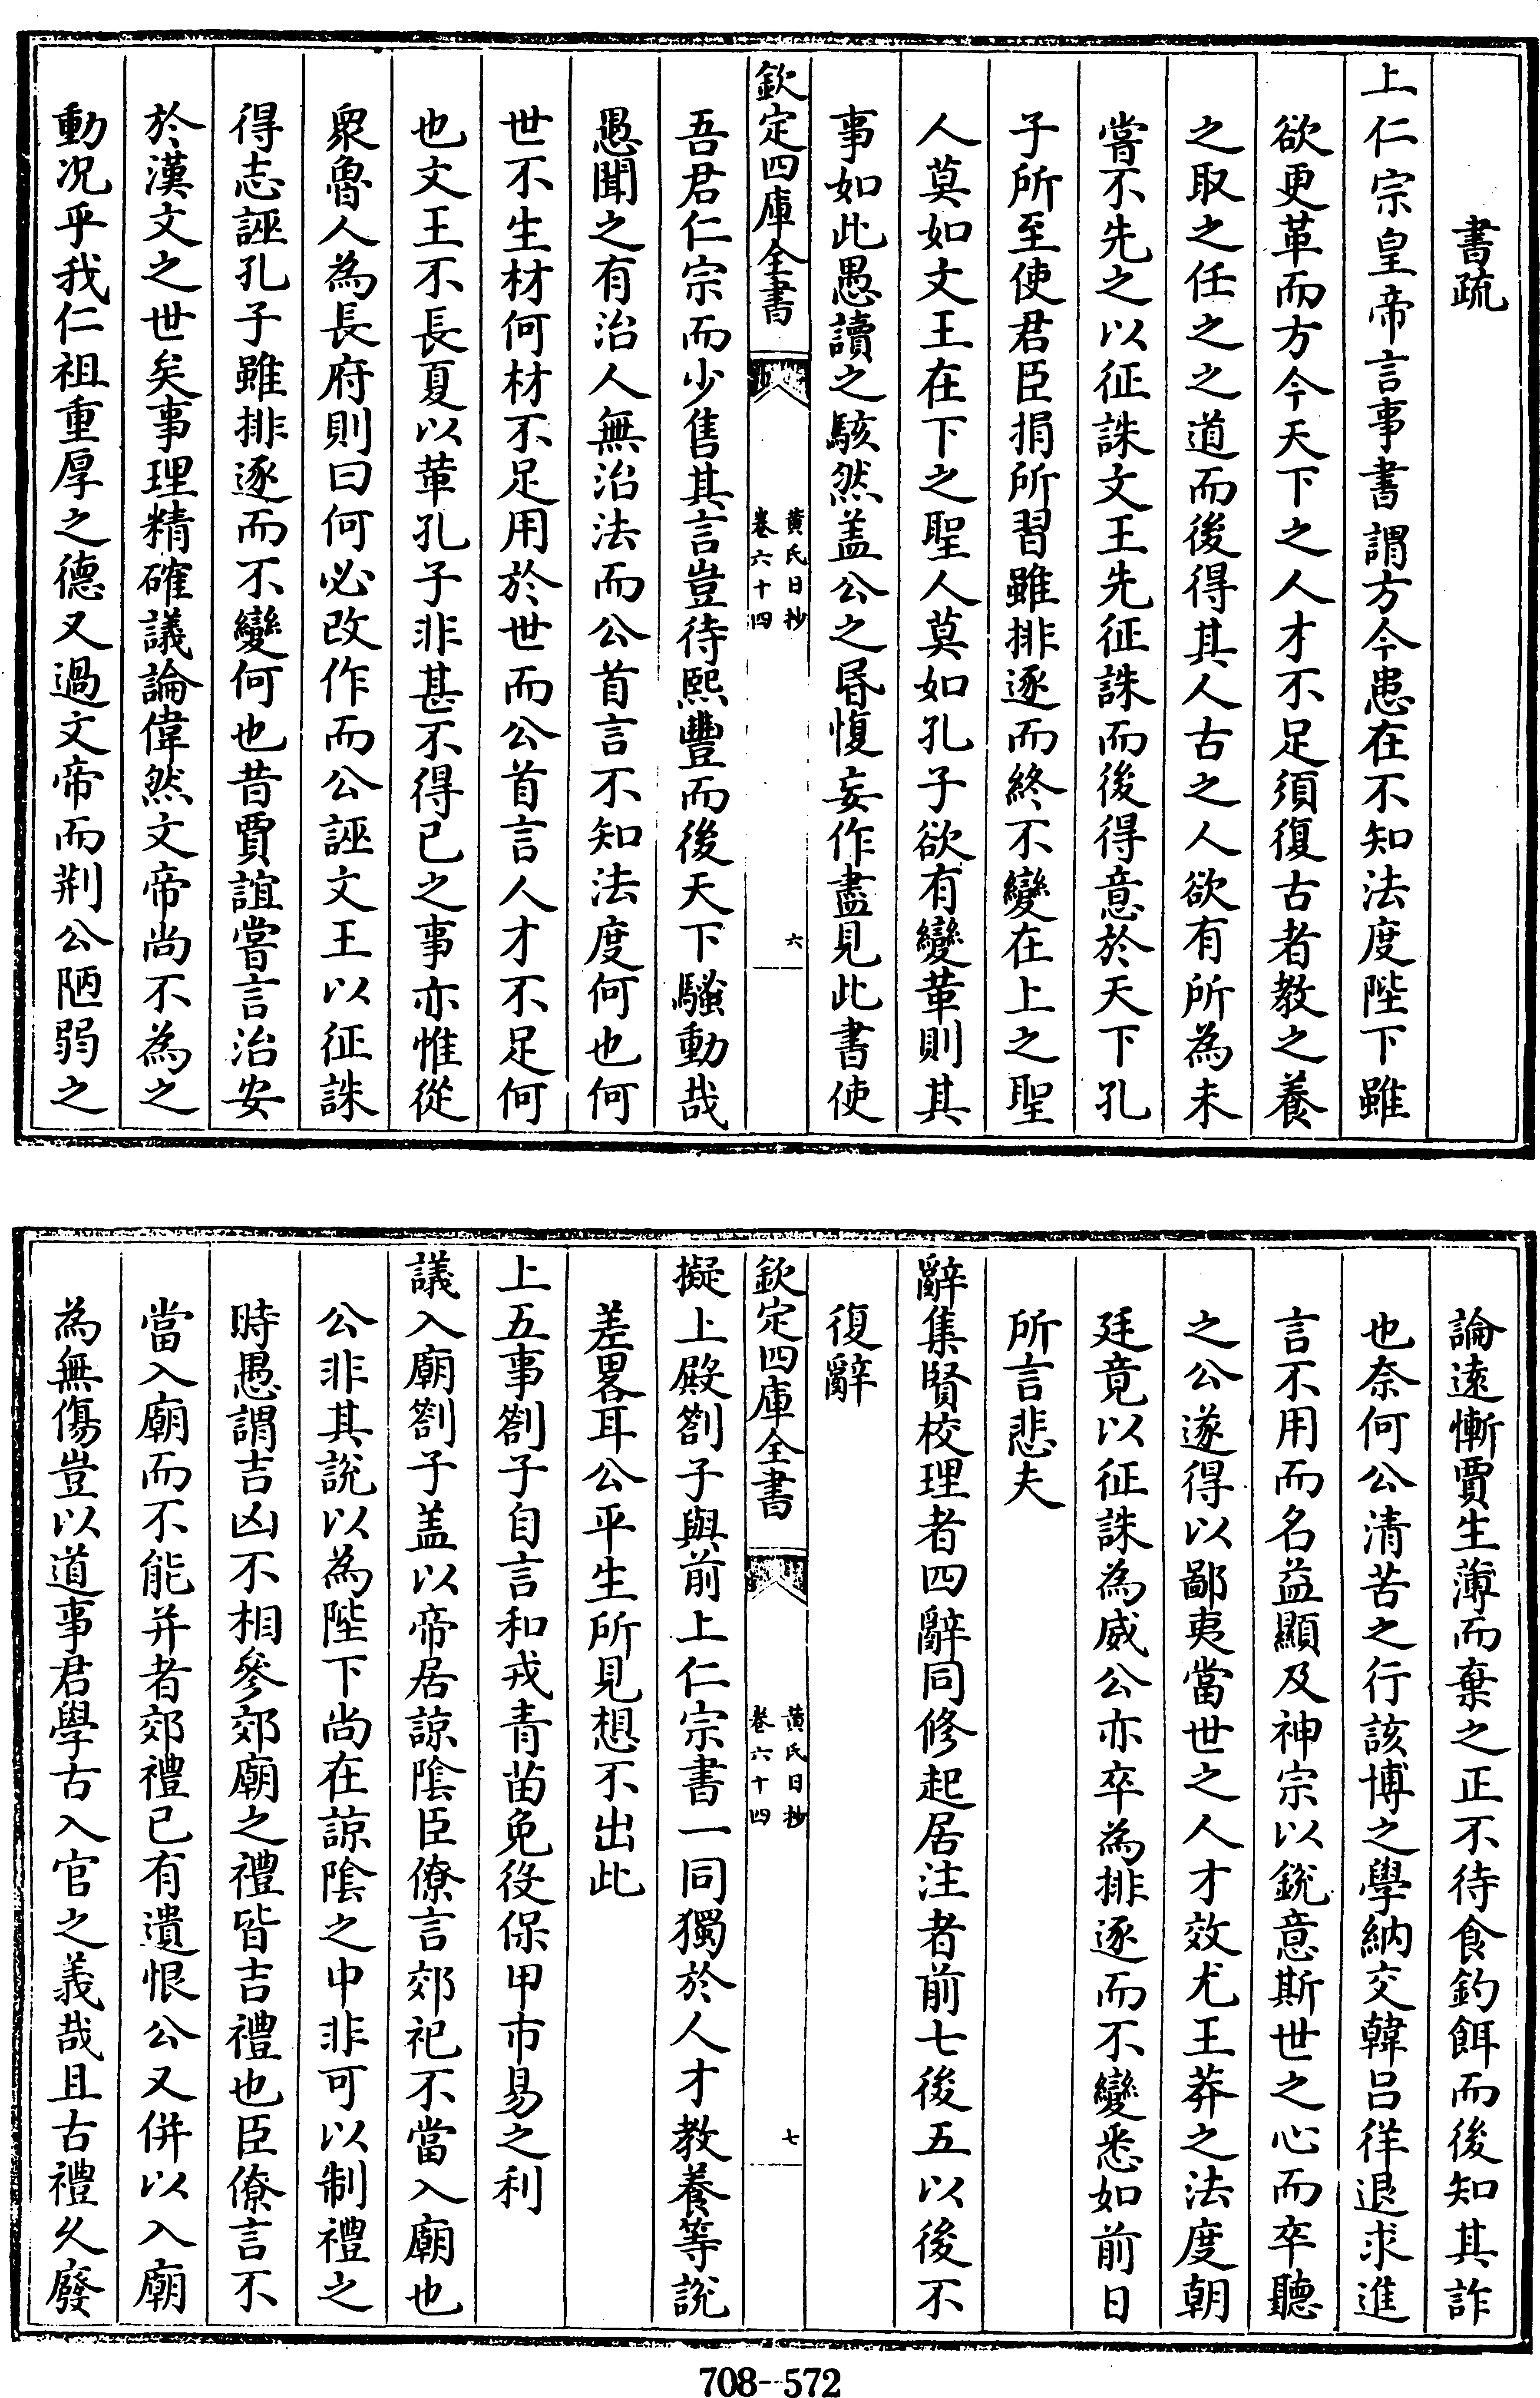 書疏
上仁宗皇帝言事書謂方今患在不知法度陛下雖
欲更革而方今天下之人才不足須復古者教之養
之取之任之之道而後得其人古之人欲有所為未
嘗不先之以征誅文王先征誅而後得意於天下孔
子所至使君臣捐所習雖排逐而終不變在上之聖
人莫如文王在下之聖人莫如孔子欲有變革則其
事如此愚讀之駭然盖公之昬愎妄作盡見此書使
欽定四庫全書
黃氏日抄
卷六十四
六
吾君仁宗而少售其言豈待熙豐而後天下騷動哉
愚聞之有治人無治法而公首言不知法度何也何
世不生材何材不足用於世而公首言人才不足何
也文王不長夏以革孔子非甚不得已之事亦惟從
衆魯人為長府則曰何必改作而公誣文王以征誅
得志誣孔子雖排逐而不變何也昔賈誼嘗言治安
於漢文之世矣事理精確議論偉然文帝尚不為之
動况乎我仁祖重厚之德又過文帝而荆公陋弱之
論遠慚賈生薄而棄之正不待食釣餌而後知其詐
也奈何公清苦之行該博之學納交韓呂徉退求進
言不用而名益顯及神宗以銳意斯世之心而卒聽
之公遂得以鄙夷當世之人才效尤王莽之法度朝
廷竟以征誅為威公亦卒為排逐而不變悉如前日
所言悲夫
辭集賢校理者四辭同修起居注者前七後五以後不
復辭
欽定四庫全書
黃氏日抄
卷六十四
七
擬上殿劄子與前上仁宗書一同獨於人才教養等說
差畧耳公平生所見想不出此
上五事劄子自言和戎青苗免役保甲市易之利
議入廟劄子盖以帝居諒陰臣僚言郊祀不當入廟也
公非其說以為陛下尚在諒陰之中非可以制禮之
時愚謂吉凶不相參郊廟之禮皆吉禮也臣僚言不
當入廟而不能并者郊禮已有遺恨公又併以入廟
為無傷豈以道事君學古入官之義哉且古禮久廢
708--572